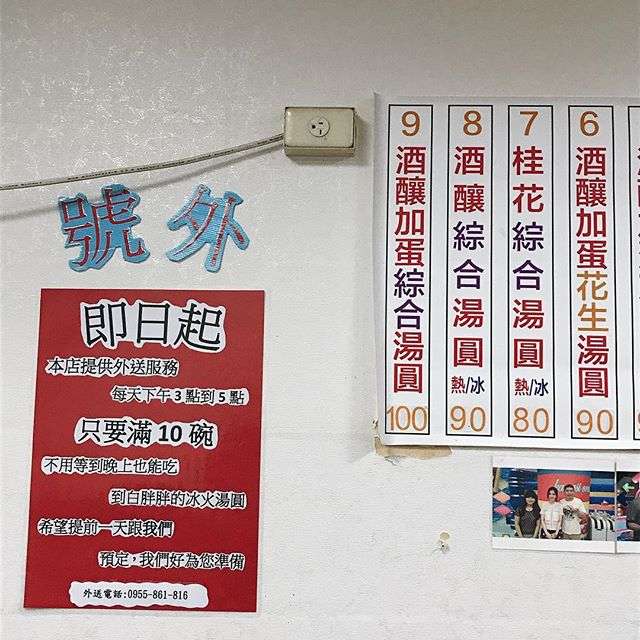 號外
即日起
本店提供外送服務
每天下午3點到5點
只要滿10碗
不用等到晚上也能吃
到白胖胖的冰火湯圓
希望提前一天跟我們
預定，我們好為您準備
外送電話:0955-861-816
6
酒釀加蛋花生湯圓
90
7
桂花綜合湯圓
熱/冰
80
8
酒釀綜合湯圓
熱/冰
90
9
酒釀加蛋綜合湯圓
100